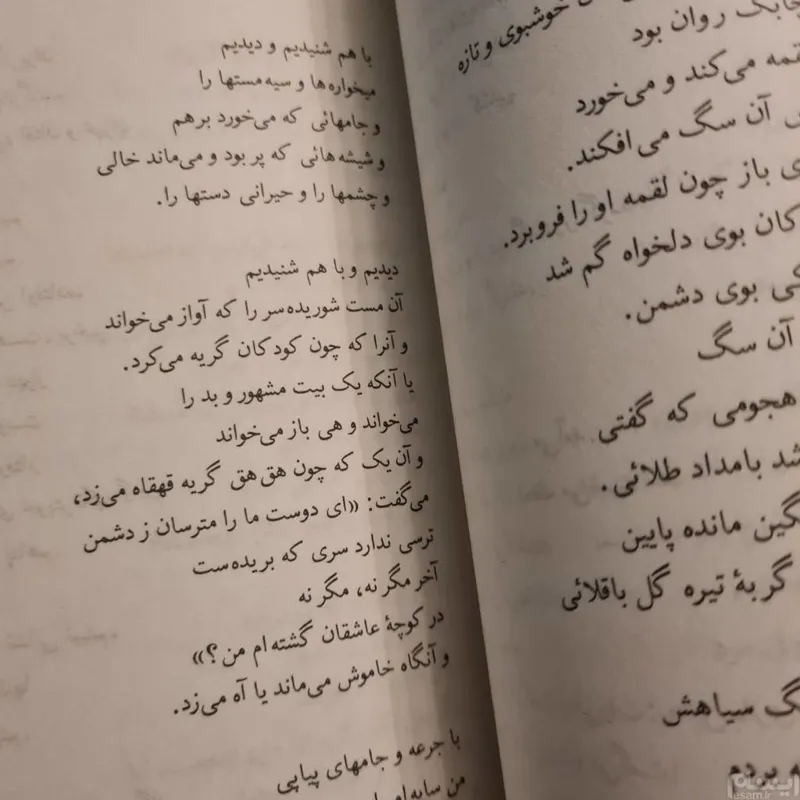 با هم شنیدیم و دیدیم
میخواره‌ها و سیه‌مستها را
و جامهائی که می‌خورد برهم
و شیشه‌هائی که پر بود و می‌ماند خالی
و چشمها را و حیرانی دستها را.
دیدیم و با هم شنیدیم
آن مست شوریده‌سر را که آواز می‌خواند
و آنرا که چون کودکان گریه می‌کرد.
یا آنکه یک بیت مشهور و بد را
می‌خواند و هی باز می‌خواند
و آن یک که چون هق‌هق گریه قهقاه می‌زد،
می‌گفت: «ای دوست ما را مترسان ز دشمن
ترسی ندارد سری که بریده‌ست
آخر مگر نه، مگر نه
در کوچهٔ عاشقان گشته‌ام من؟»
و آنگاه خاموش می‌ماند یا آه می‌زد.
با جرعه و جامهای پیاپی
من
خوشبوی و تازه
روان بود
می‌کند و می‌خورد
آن سگ می‌افکند.
باز چون لقمه او را فروبرد.
بوی دلخواه گم شد
بوی دشمن.
آن سگ
هجومی که گفتی
بامداد طلائی.
مانده پایین
گربهٔ تیره گل باقلائی
سیاهش
esam.ir